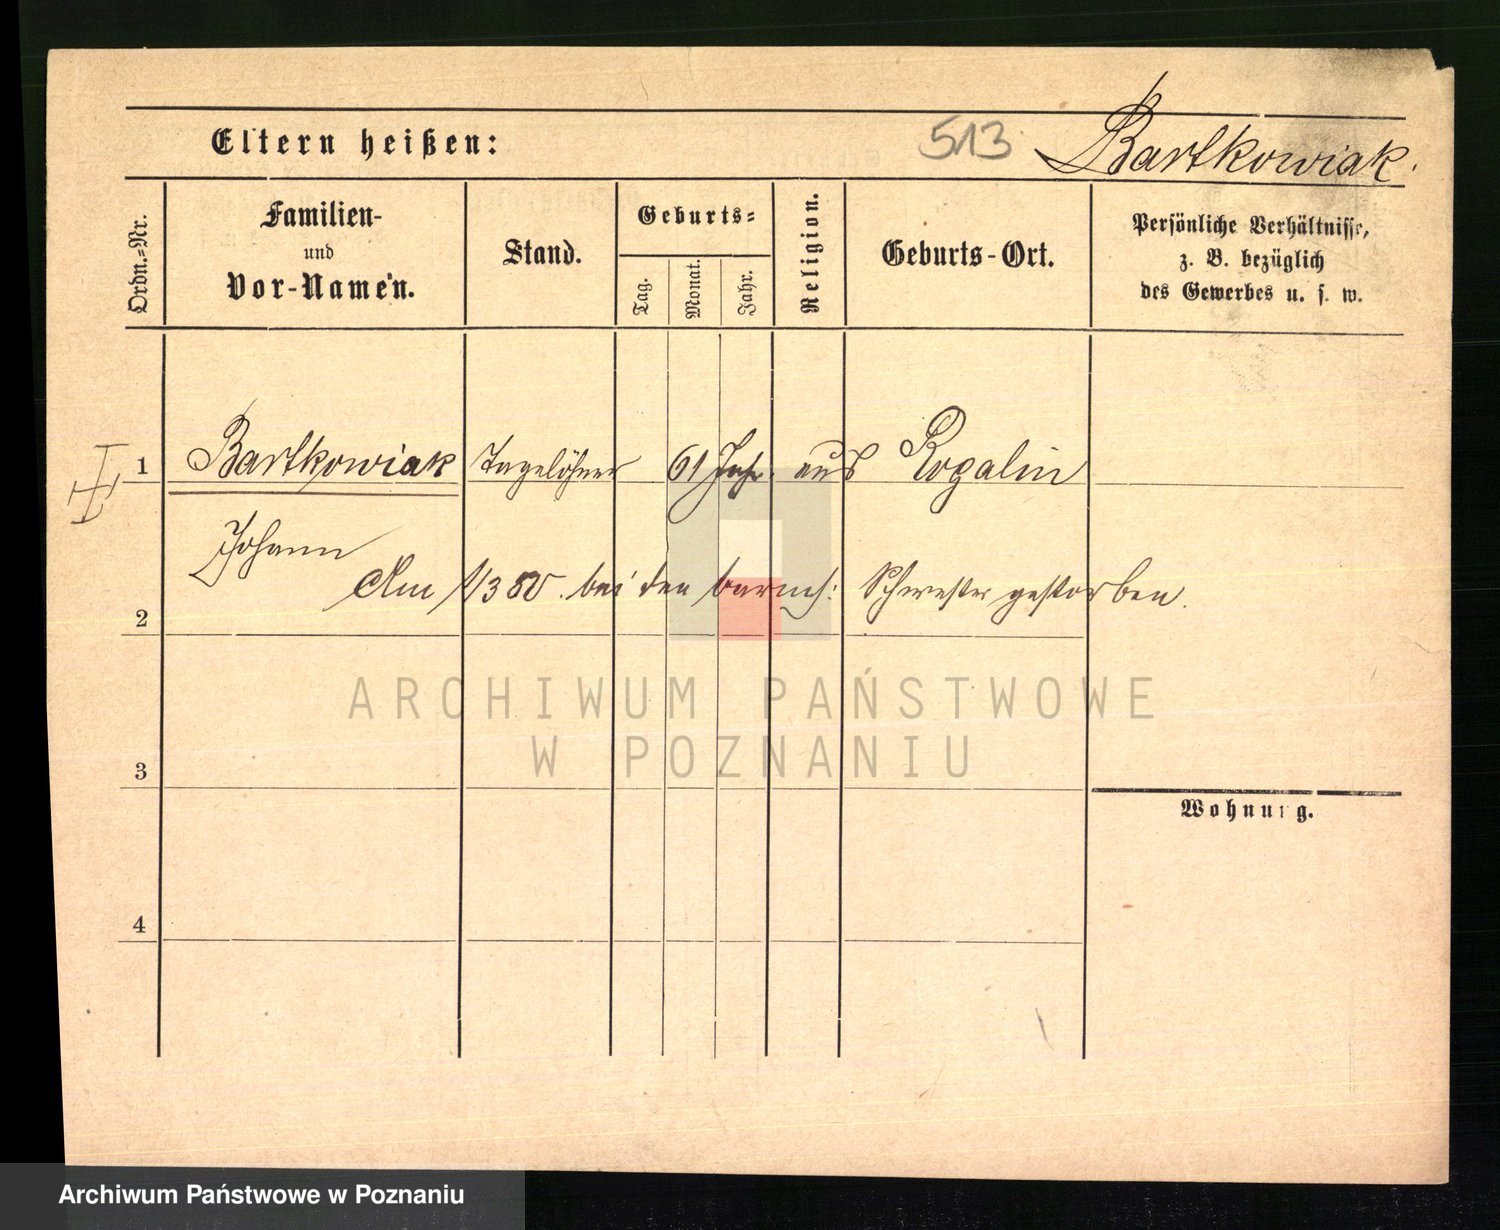 Eltern heißen:
513
Bartkowiak.
Ordn.-Nr.
Familien-
und
Vor-Namen.
Stand.
Geburts-
Tag.
Monat.
Jahr.
Religion.
Geburts-Ort.
Persönliche Verhältnisse,
z. B. bezüglich
des Gewerbes u. s. w.
1 Bartkowiak Tagelöhner 61 Jahr. aus Rogalin
Johann
Am 1/3 80. bei den barmh: Schwester gestorben.
2
ARCHIWUM PAŃSTWOWE
W POZNANIU
3
Wohnung.
4
Archiwum Państwowe w Poznaniu